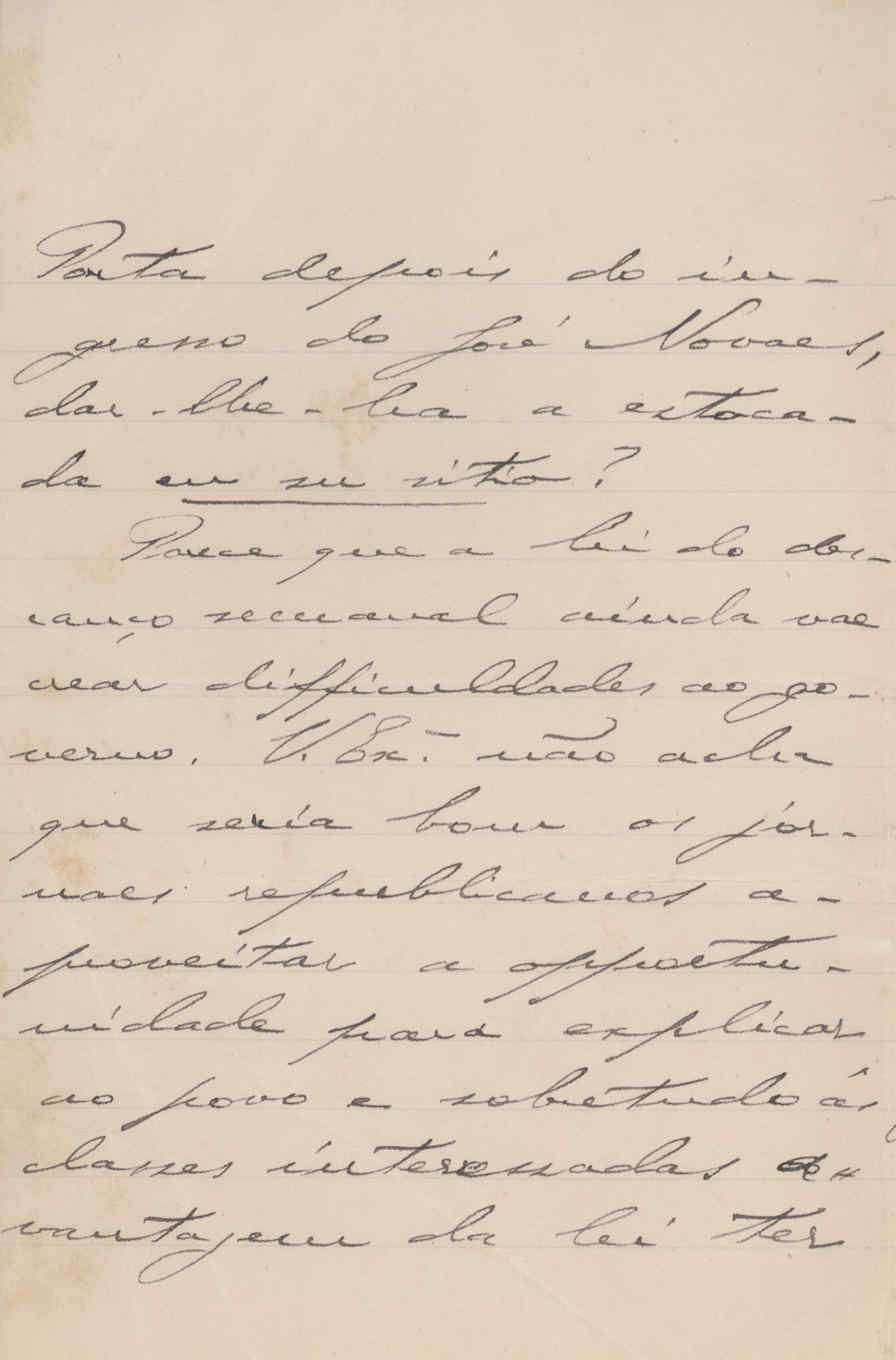 Porta depois do in-
gresso do José Novaes,
dar-lhe-ha a estoca-
da en su sitio?
Parece que a lei do des-
canço semanal ainda vae
crear difficuldades ao go-
verno. V. Exª não acha
que seria bom os jor-
naes republicanos a-
proveitar a opportu-
nidade para explicar
ao povo e sobretudo ás
classes interessadas a
vantagem da lei ter